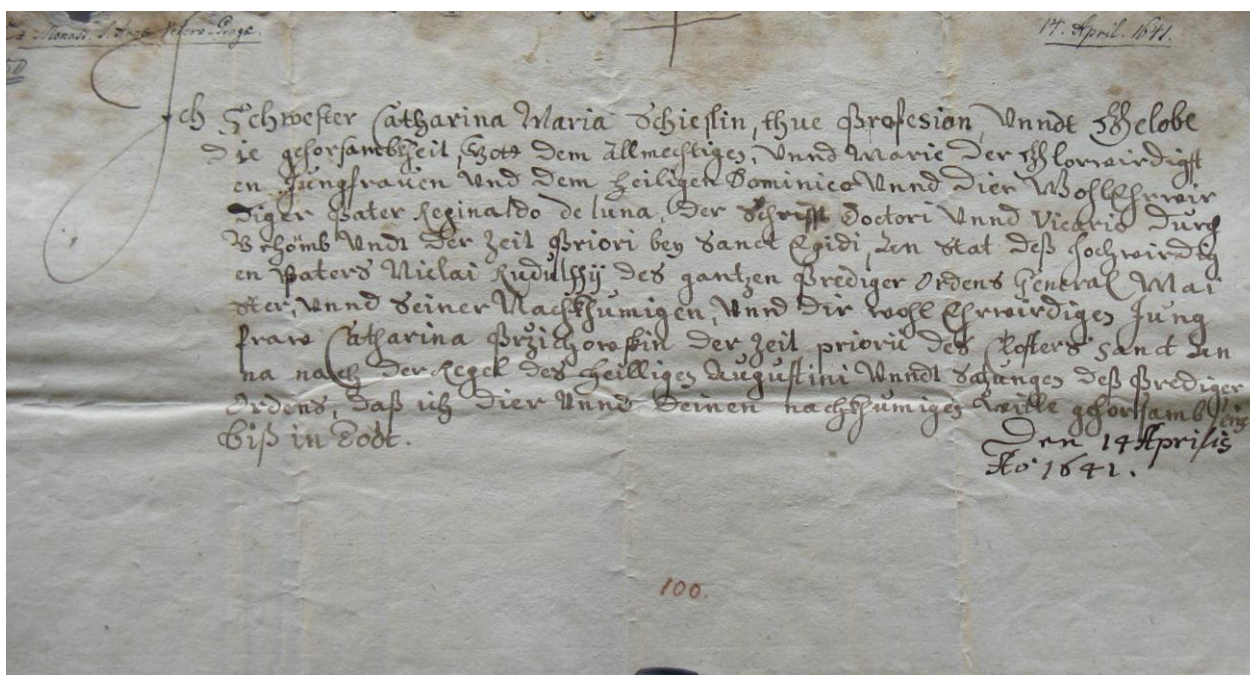 Monast. S. Annae Vetero-Pragae.
14. April. 1641.
Ich Schwester Catharina Maria Schieslin, thue Profesion, Unndt Gelobe
die gehorsambheit, Gott dem Allmechtigen, Unnd Marie der Glorwirdigst
en Jungfrauen Und dem heiligen Dominico Unnd Dier WohlEhrwir
diger Pater Reginaldo de luna, Der Schrifft Doctori Unnd Vicario Durch
Behömb Undt der Zeit Priori bey Sanct Egidi, an stat deß hochwirdig
en Paters Niclai Rudulfij des gantzen Prediger Ordens General Mai
ster, Unnd Seiner Nachkhumigen, Unnd Dir wohl Ehrwirdigen Jung
fraw Catharina Przichowskin der Zeit priorin des Closters Sanct An
na nach der Regel des heilligen Augustini Unndt Satzungen deß Prediger
Ordens, daß ich Dier Unnd Deinen nachkhumigen wille gehorsamb
biß in Todt.
Den 14 Aprilis
Ao 1641.
100.